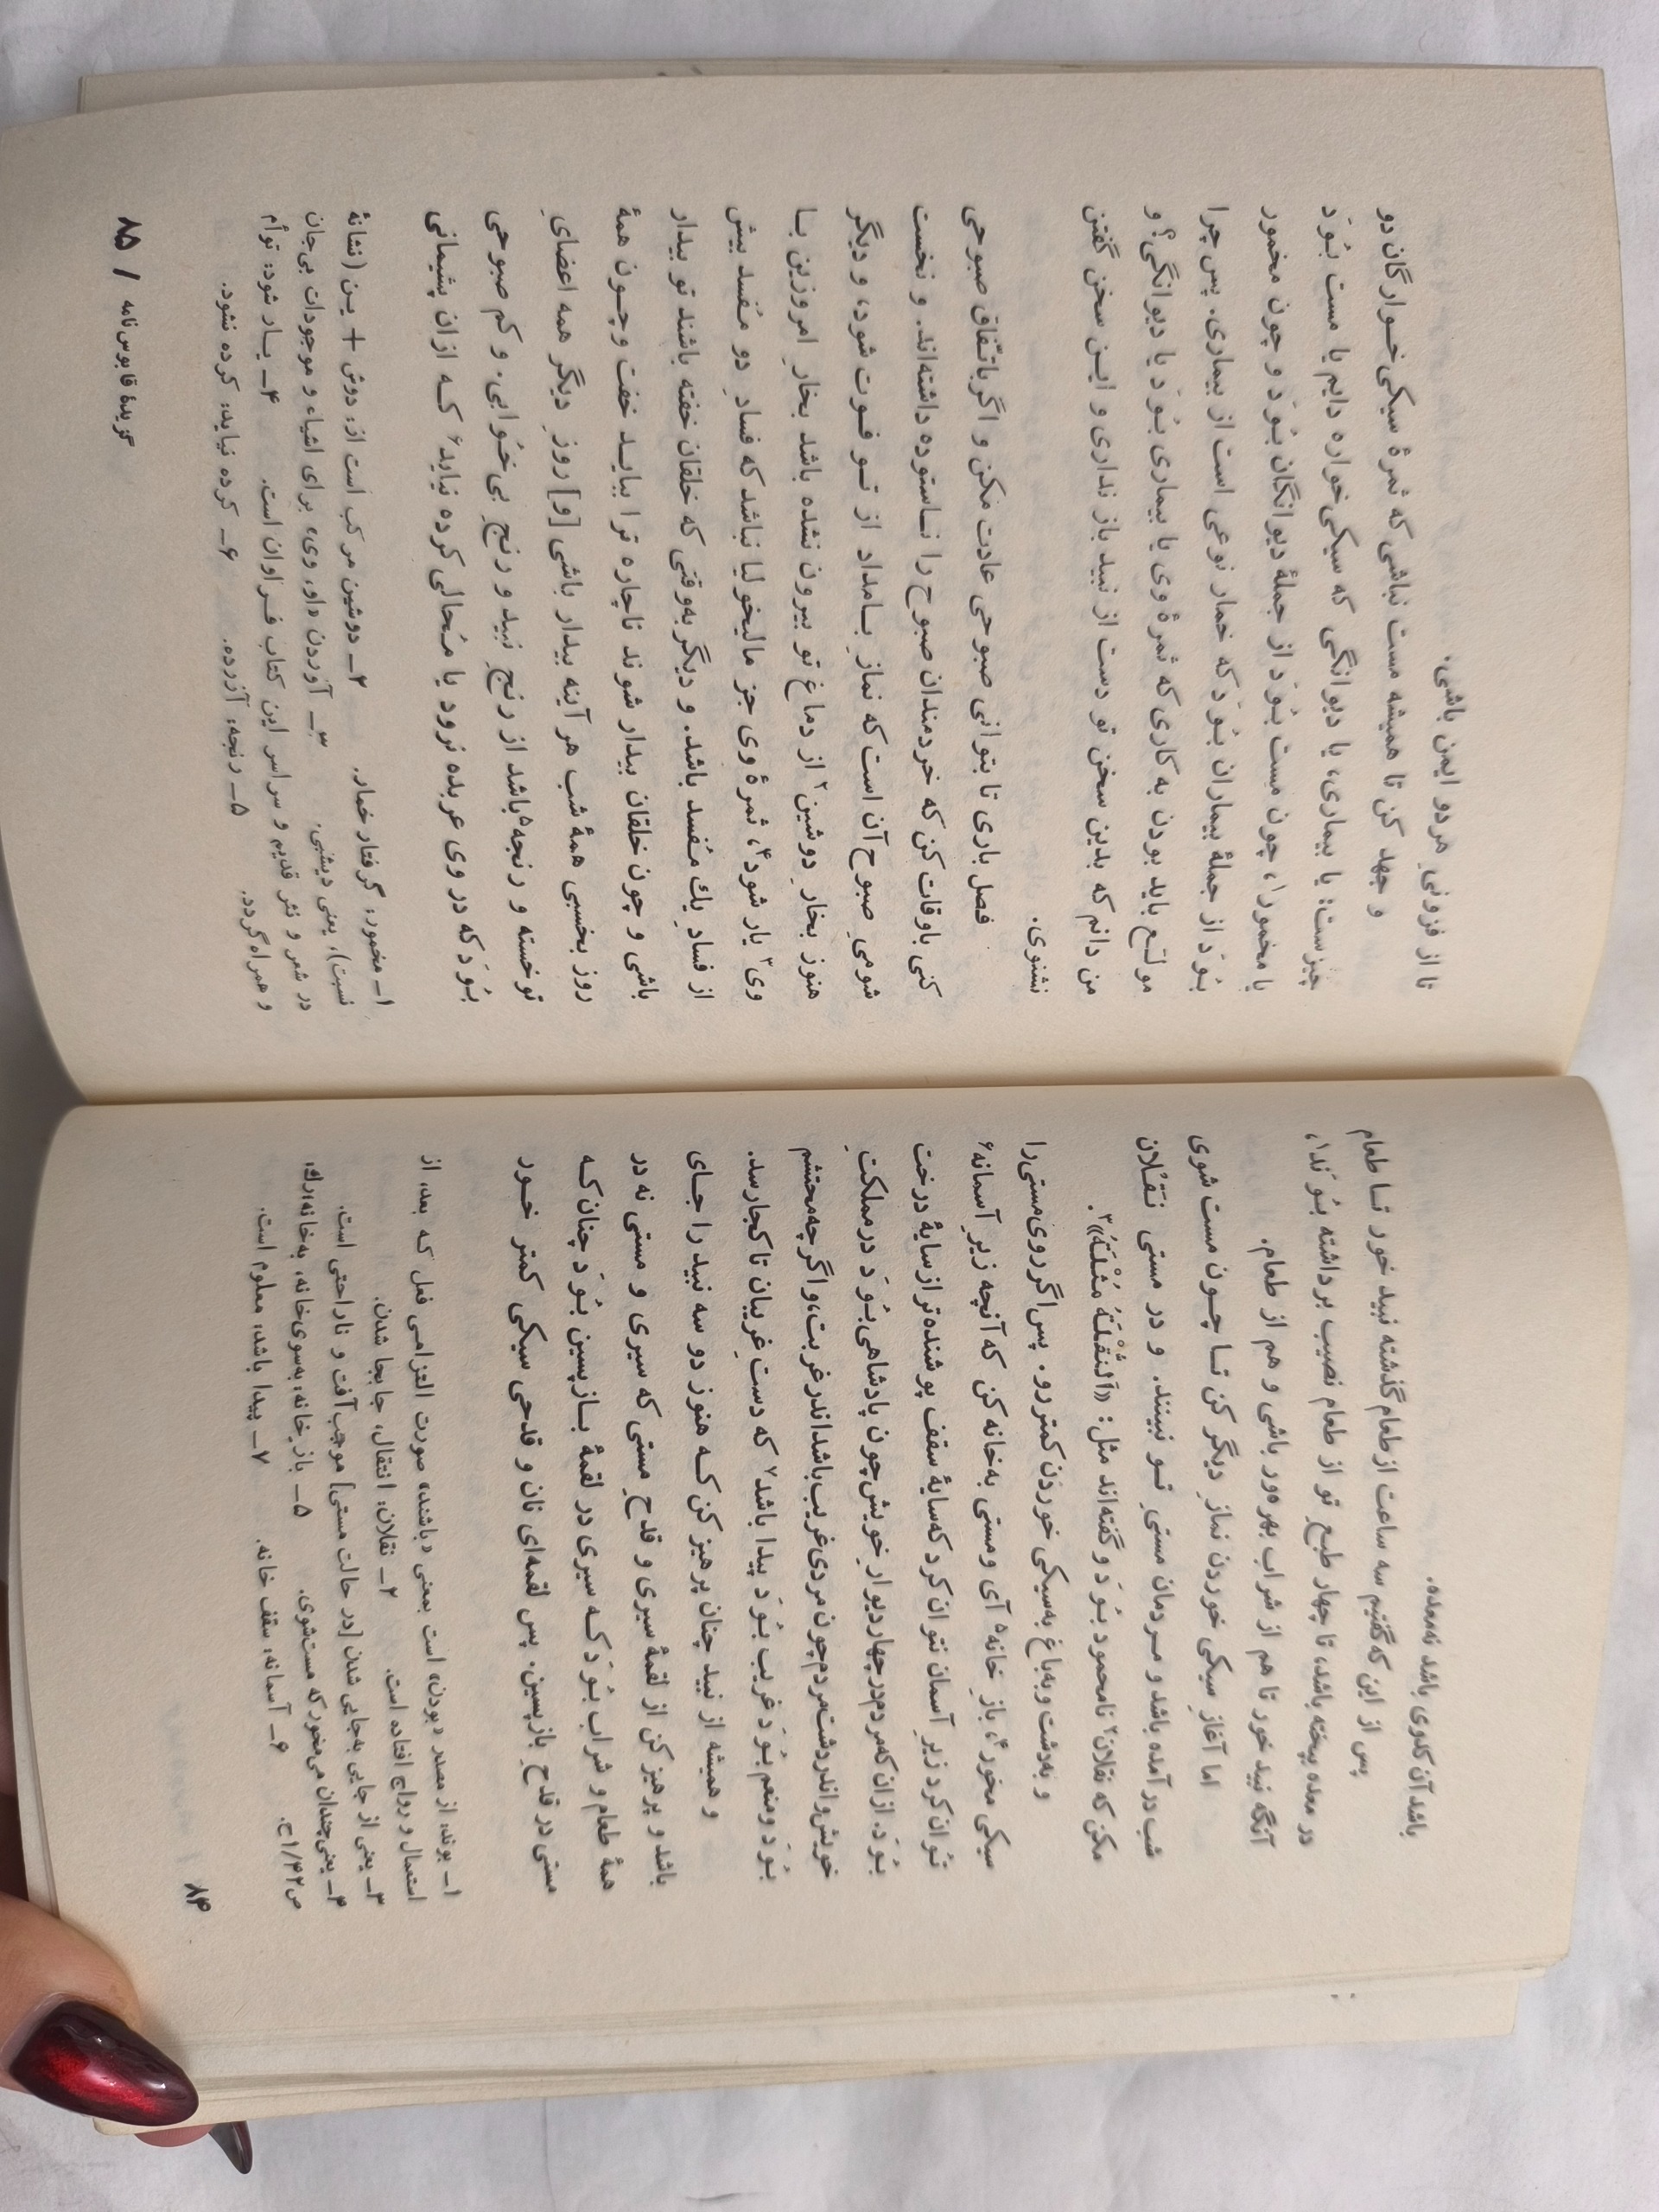 باشد آن کلوی باشد نه معده.
پس از این که گفتیم سه ساعت از طعام گذشته نبید خور تـا طعام
در معده پخته باشد، تا چهار طبعِ تو از طعام نصیب برداشته بُـوَند۱،
آنگه نبید خور تا هم از شراب بهره‌ور باشی و هم از طعام.
اما آغازِ سیکی خوردن نمازِ دیگر کن تـا چـون مست شوی
شب در آمده باشد و مـردمان مستیِ تـو نبینند. و در مستی نَـقَـلان
مکن که نقلان۲ نامحمود بُـوَد و گفته‌اند مثل: «اَلنُقْلَةُ مُثْـلَةُ»۳.
و به‌دشت و به‌باغ به سیکی خوردن کمتر رو. پس اگر روی مستی را
سیکی مخور۴، بازِ خانه۵ آی و مستی به‌خانه کن که آنچه زیرِ آسمانه۶
تـوان کرد زیرِ آسمان نتوان کرد که سایهٔ سقف پوشنده‌تر از سایهٔ درخت
بُـوَد. ازان که مردم در چهار دیوارِ خویش چون پادشاهی بُـوَد در مملکتِ
خویش و اندر دشت مردم چون مردی غریب باشد اندر غربت، و اگر چه محتشم
بُـوَد و منعم بُـوَد غریب بُـوَد پیدا باشد۷ که دستِ غریبان تا کجا رسد.
و همیشه از نبید چنان پرهیز کن کـه هنوز دو سه نبید را جـای
باشد و پرهیز کن از لقمهٔ سیری و قدحِ مستی که سیری و مستی نه در
همهٔ طعام و شراب بُـوَد کـه سیری در لقمهٔ بـازپسین بُـوَد چنان کـه
مستی در قدحِ بازپسین. پس لقمه‌ای نان و قدحی سیکی کمتر خـور
۱ـ بوند، از مصدر «بودن» است بمعنی «باشند» صورت التزامـی فعل کـه بعد، از
استعمال و رواج افتاده است. ۲ـ نقلان، انتقال، جا بجا شدن.
۳ـ یعنی از جایی به‌جایی شدن [در حالت مستی] موجب آفت و ناراحتی است.
۴ـ یعنی چندان می‌مخور که مست شوی. ۵ـ بازِ خانه، به‌سوی خانه، به‌خانه، رك،
ص۱/۳۲ح. ۶ـ آسمانه، سقف خانه. ۷ـ پیدا باشد، معلوم است.
۸۴
تا از فزونیِ هر دو ایمن باشی.
و جهد کن تا همیشه مست نباشی که ثمرهٔ سیکی خـوارگان دو
چیزست: یا بیماری، یا دیوانگی که سیکی خواره دایم یا مست بُـوَد
یا مخمور۱، چون مست بُـوَد از جملهٔ دیوانگان بُـوَد و چون مخمور
بُـوَد از جملهٔ بیماران بُـوَد که خمار نوعی است از بیماری. پس چرا
مولَـع باید بودن به کاری که ثمرهٔ وی یا بیماری بُـوَد یا دیوانگی؟ و
من دانم که بدین سخن تو دست از نبید باز نداری و ایـن سخن گفتن
نشنوی.
فصل باری تا بتوانی صبوحی عادت مکن و اگر باتّفاق صبوحی
کنی باوقات کن که خردمندان صبوح را نـاستوده داشته‌اند. و نخست
شومیِ صبوح آن است که نمازِ بـامداد از تـو فـوت شود، و دیگر
هنوز بخارِ دوشین۲ از دماغِ تو بیرون نشده باشد بخارِ امروزین بـا
وی۳ یار شود۴، ثمرهٔ وی جز مالیخولیا نباشد که فسادِ دو مـُفسد بیش
از فسادِ یك مـُفسد باشد. و دیگر به‌وقتی که خلقان خفته باشند تو بیدار
باشی و چون خلقان بیدار شوند ناچاره ترا ببایـد خفت و چـون همهٔ
روز بخسبی همهٔ شب هر آینه بیدار باشی [و] روزِ دیگر همه اعضایِ
تو خسته و رنجه۵ باشد از رنجِ نبید و رنجِ بی‌خـُوابی. و کم صبوحی
بُـوَد که در وی عربده نرود یا مـُحالی کرده نیاید۶ کـه ازان پشیمانی
۱ـ مخمور، گرفتار خمار. ۲ـ دوشین مرکب است از، دوش + یـن (نشانهٔ
نسبت)، یعنی دیشبی. ۳ـ آوردن «او، وی» برای اشیاء و موجودات بی‌جان
در شعر و نثر قدیم و سراسر این کتاب فـراوان است. ۴ـ یـار شود، توأم
و همراه گردد. ۵ـ رنجه، آزرده. ۶ـ کرده نیاید، کرده نشود.
گزیدهٔ قابوس‌نامه / ۸۵